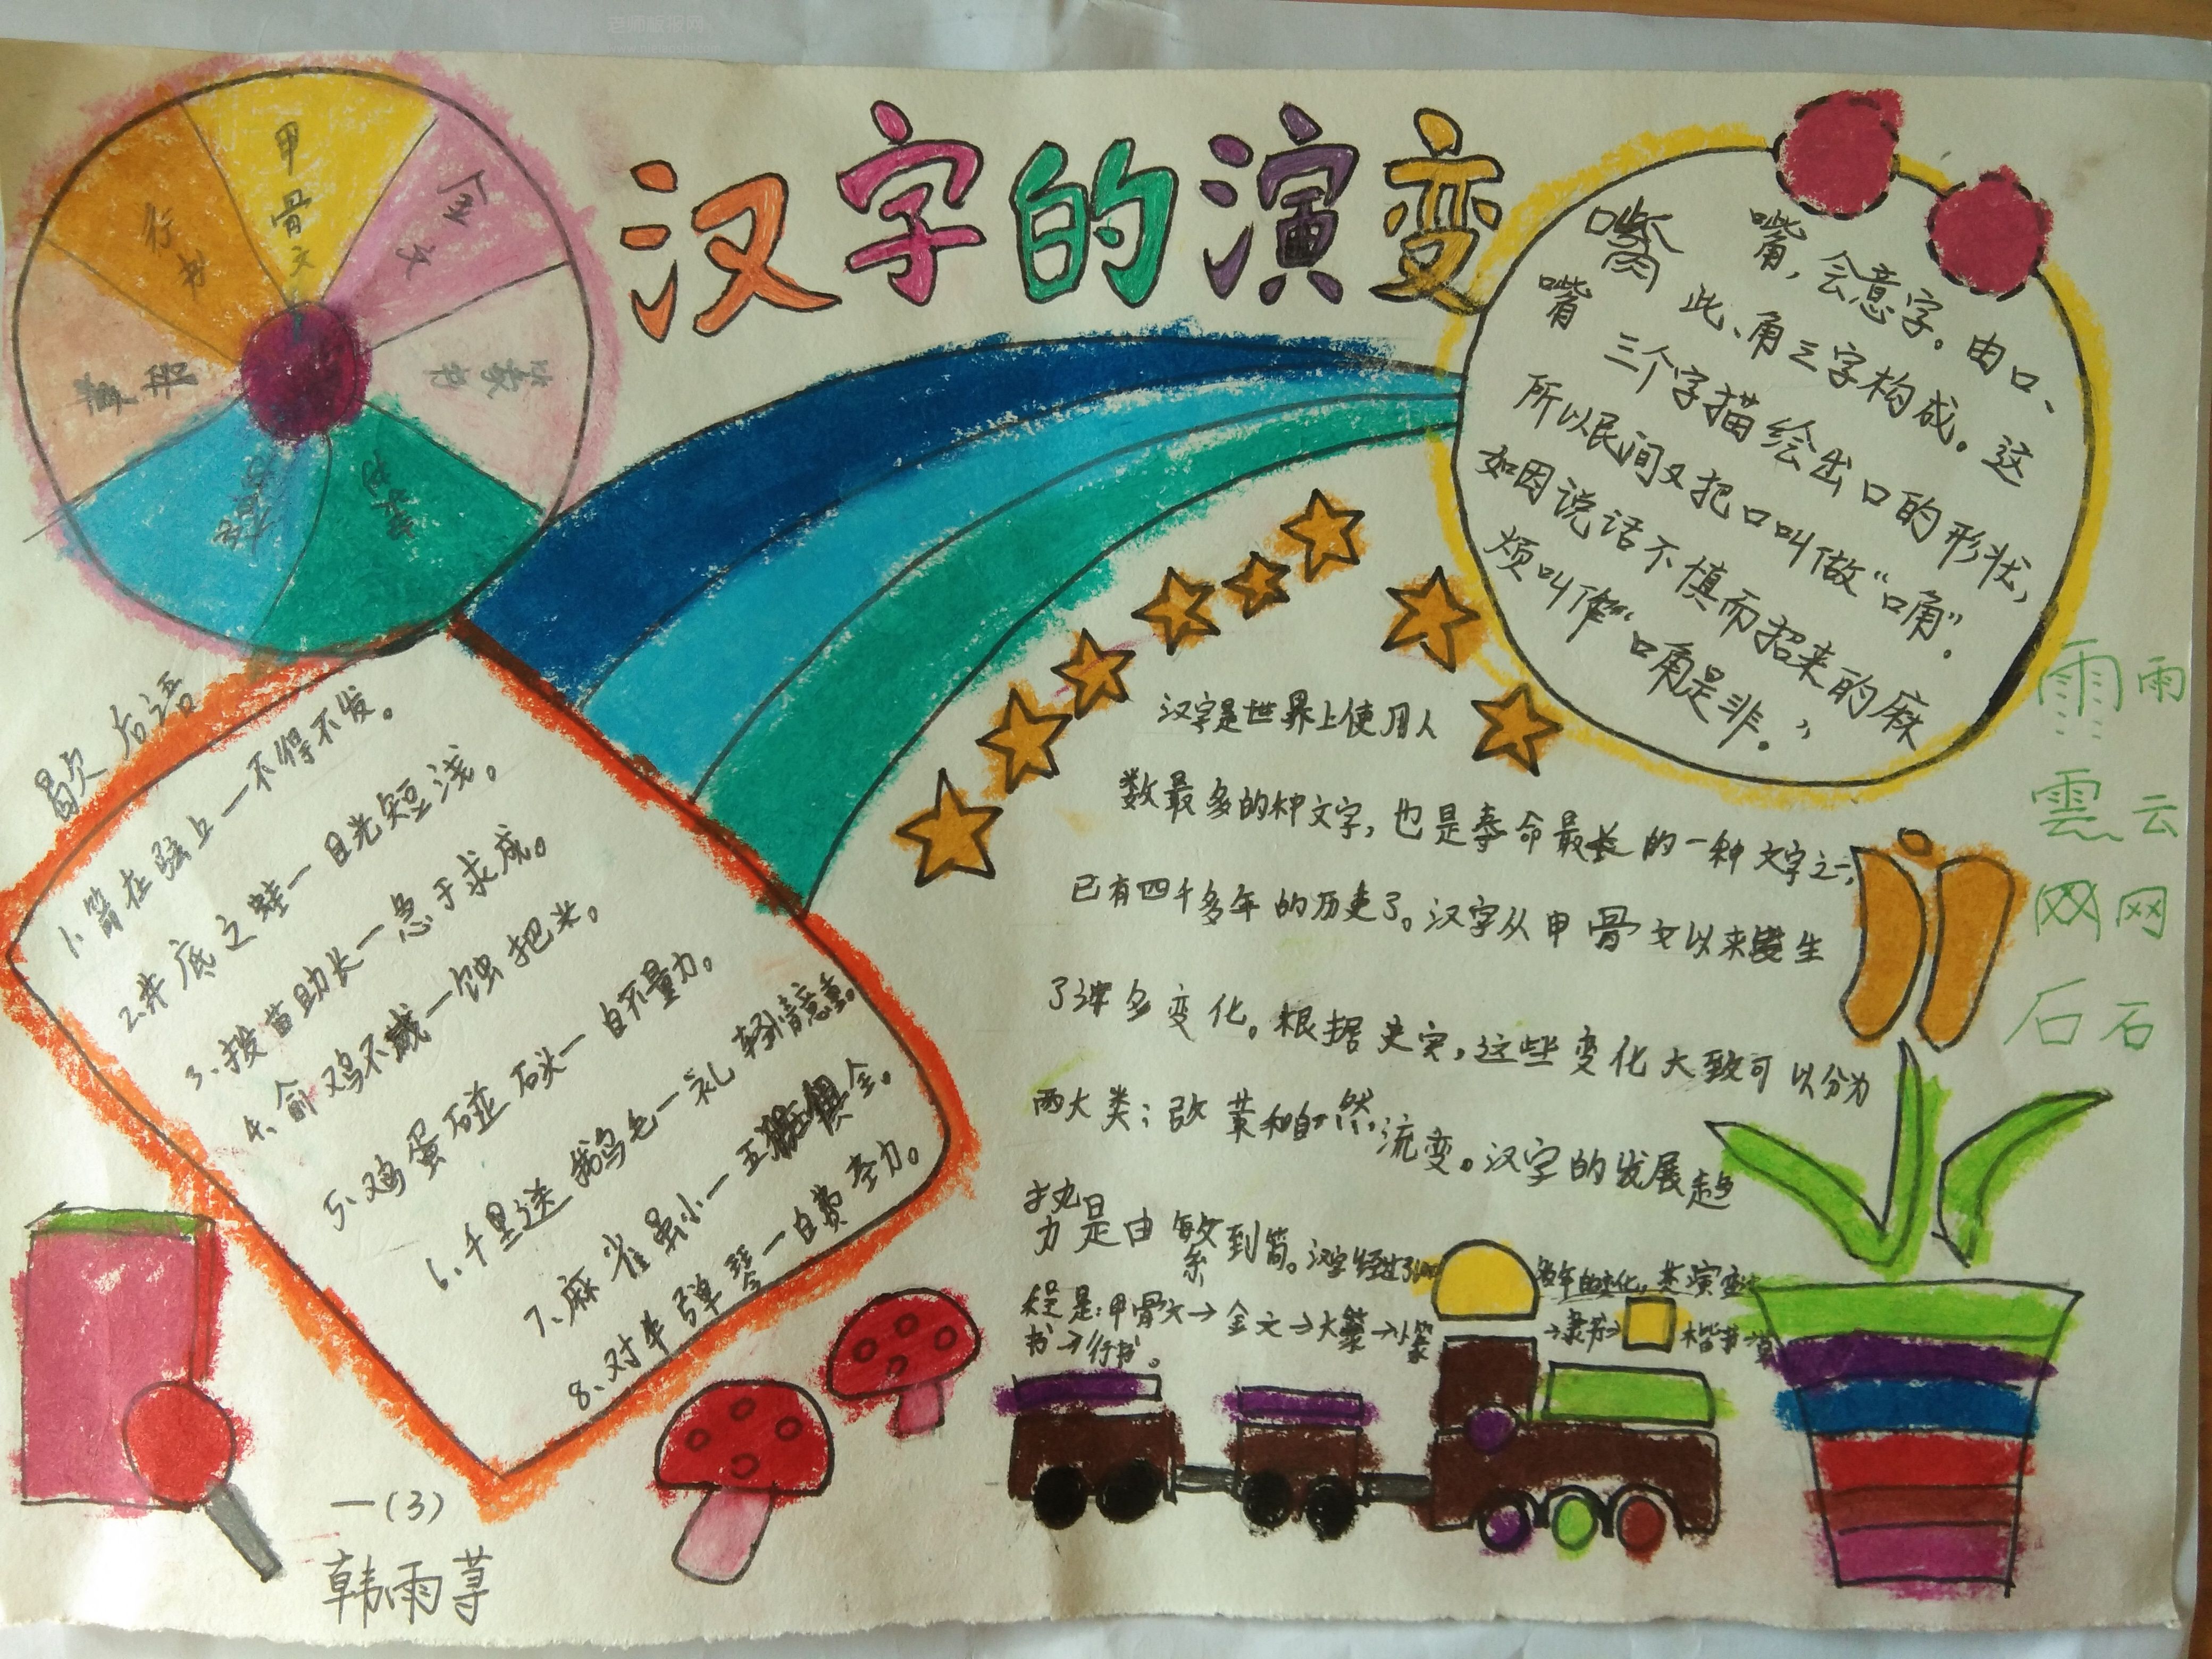 老师板报网
汉字的演变
甲骨文
金文
篆书
隶书
草书
行书
嘴 嘴，会意字。由口、
嘴 此、角三字构成。这
三个字描绘出口的形状，
所以民间又把口叫做“口角”.
如因说话不慎而招来的麻
烦叫作“口角是非。”
雨 雨
雲 云
网 网
石 石
歇后语
1.箭在弦上一不得不发。
2.井底之蛙一目光短浅。
3、拨苗助长一急于求成。
4、偷鸡不成一蚀把米。
5、鸡蛋碰石头一自不量力。
6、千里送鹅毛一礼轻情意重。
7、麻雀虽小一五脏俱全。
8、对牛弹琴一白费力。
汉字是世界上使用人
数最多的种文字，也是寿命最长的一种文字之一，
已有四千多年的历史了。汉字从甲骨文以来发生
了许多变化。根据史实，这些变化大致可以分为
两大类；改革和自然流变。汉字的发展趋
势是由繁到简。汉字经过了 多年的变化，其演变过
程是：甲骨文→金文→大篆→小篆→隶书→楷书→草
书→行书。
一(3)
韩雨荨